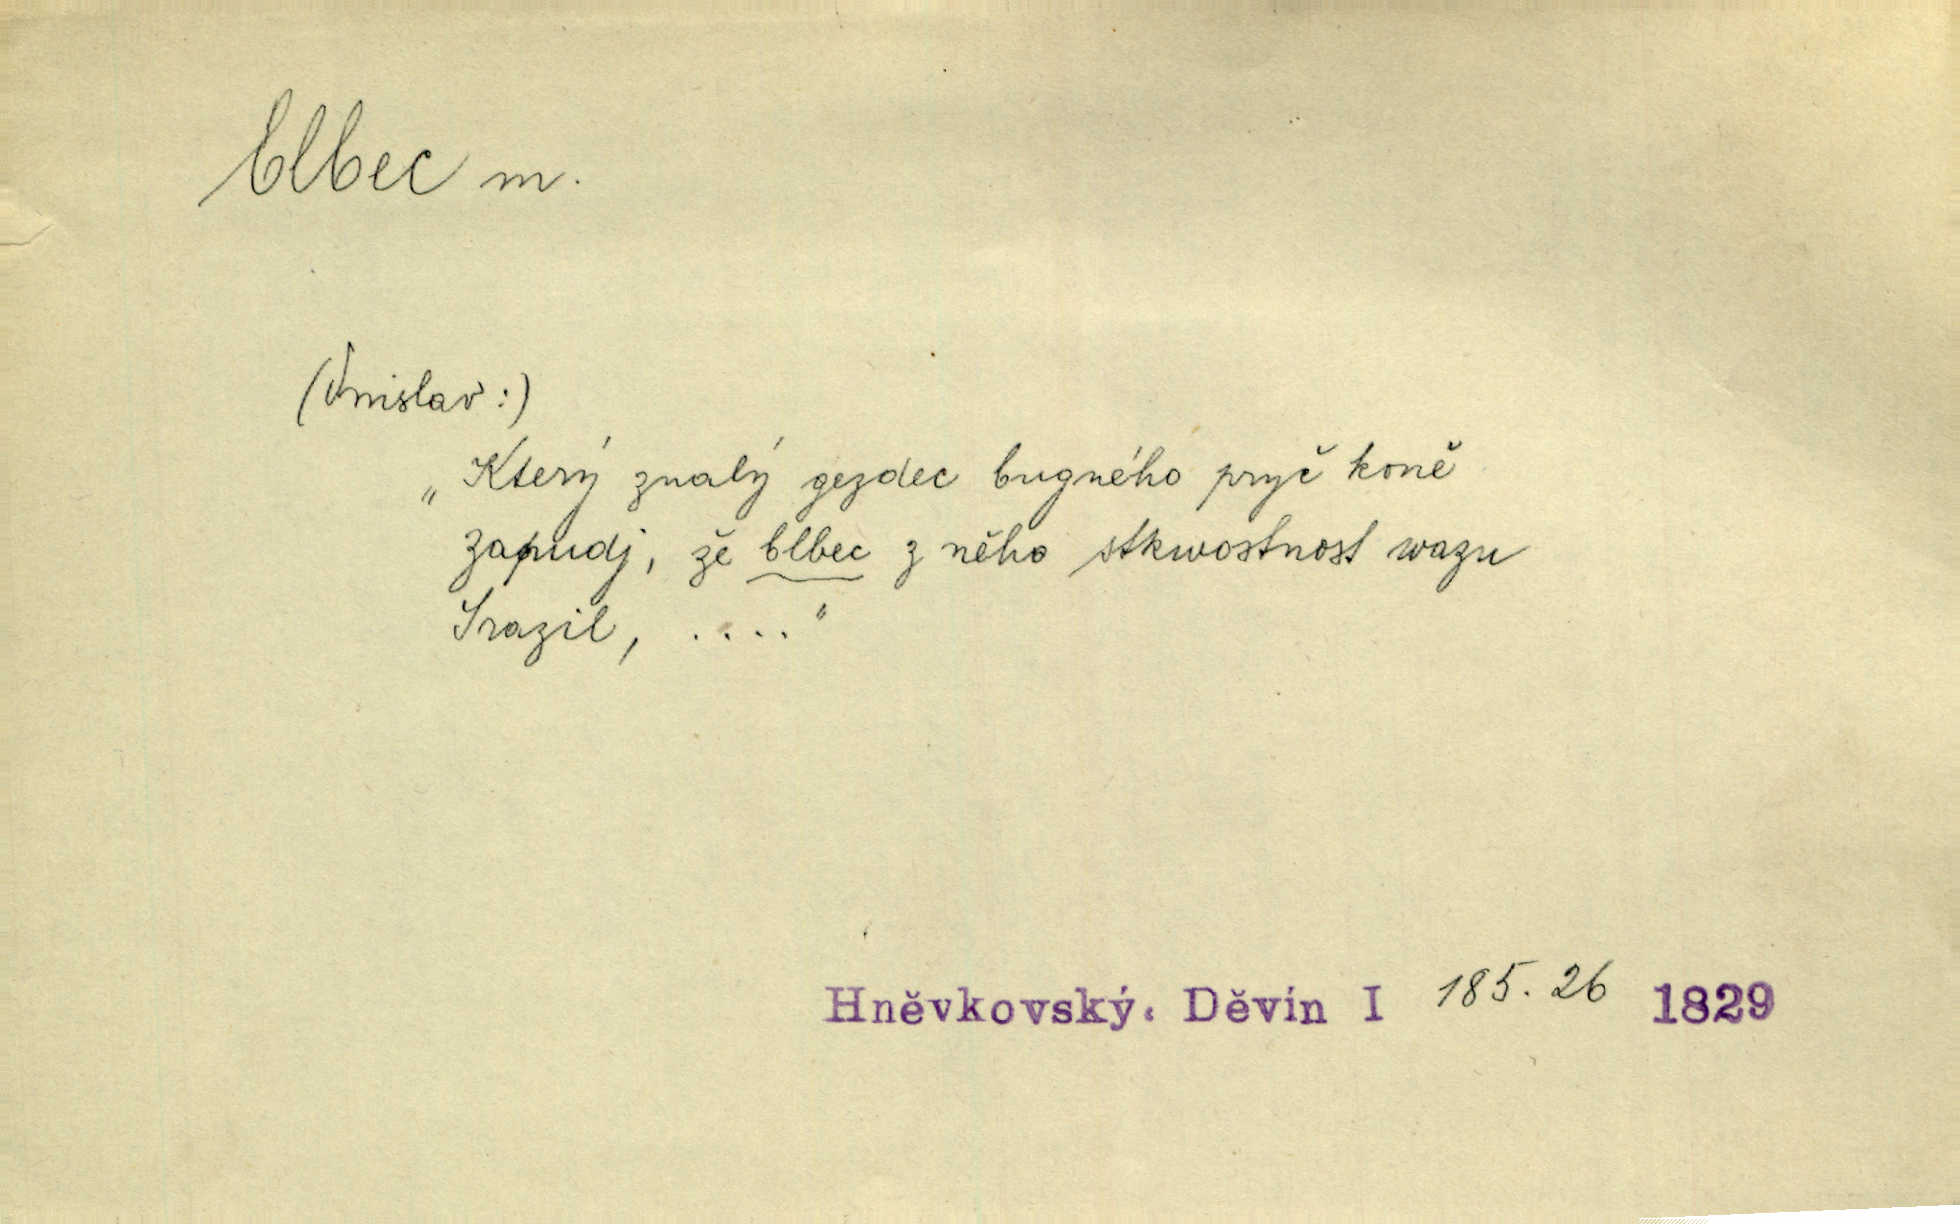 blbec m.
(Vnislav:)
„Který znalý gezdec bugného pryč koně
zapudj, že blbec z něho stkwostnost wazu
Srazil, ...."
Hněvkovský. Děvín I 185.26 1829